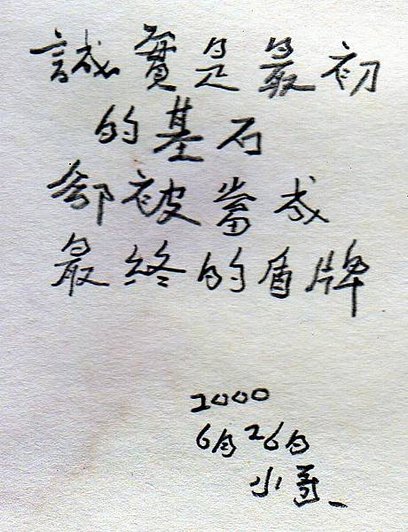 誠實是最初
的基石
卻被當成
最終的盾牌
2000
6月26日
小哥